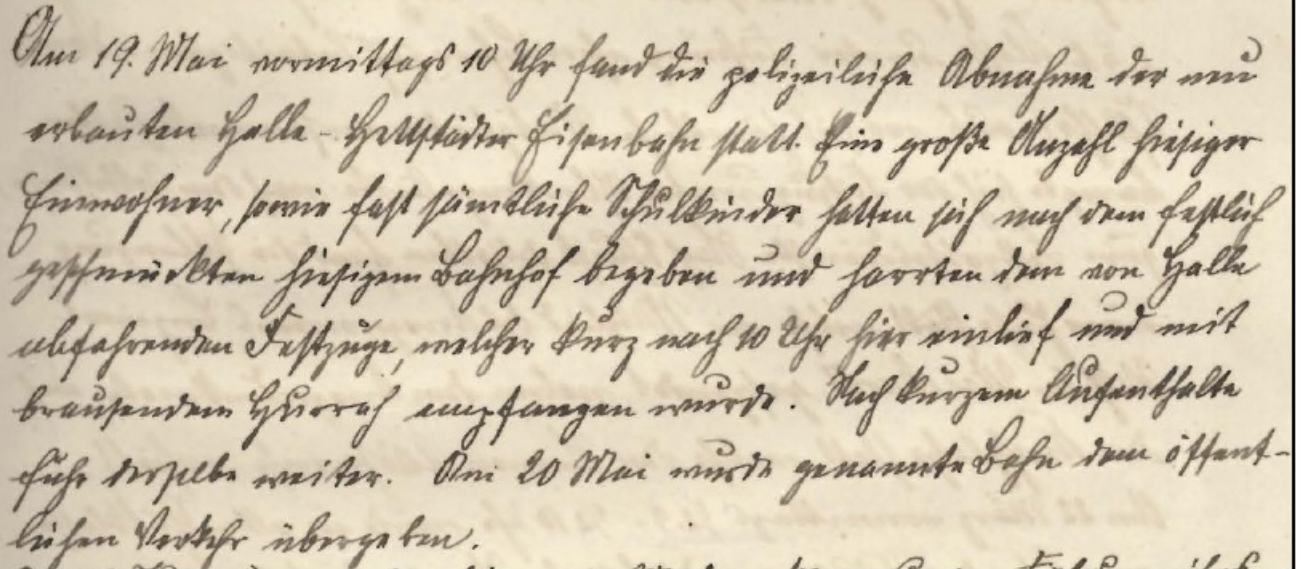 Am 19. Mai vormittags 10 Uhr fand die polizeiliche Abnahme der neu
erbauten Halle-Hettstädter Eisenbahn statt. Eine große Anzahl hiesiger
Einwohner, sowie fast sämtliche Schulkinder hatten sich nach dem festlich
geschmückten hiesigem Bahnhof begeben und harrten dem von Halle
abfahrenden Festzuge, welcher kurz nach 10 Uhr hier einlief und mit
brausendem Hurrah empfangen wurde. Nach kurzem Aufenthalte
fuhr derselbe weiter. Am 20 Mai wurde genannte Bahn dem öffent-
lichen Verkehr übergeben.